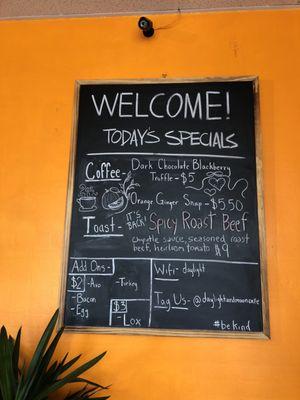 WELCOME!
TODAY'S SPECIALS
Coffee- Dark Chocolate Blackberry
Truffle-$5
Orange Ginger Snap-$5.50
Toast- IT'S BACK! Spicy Roast Beef
chipotle sauce, seasoned roast
beef, heirloom tomato $9
Add Ons-
$2 -Avo -Turkey
-Bacon
-Egg
$3
-Lox
Wifi- daylight
Tag Us- @daylightandmooncafe
#bekind